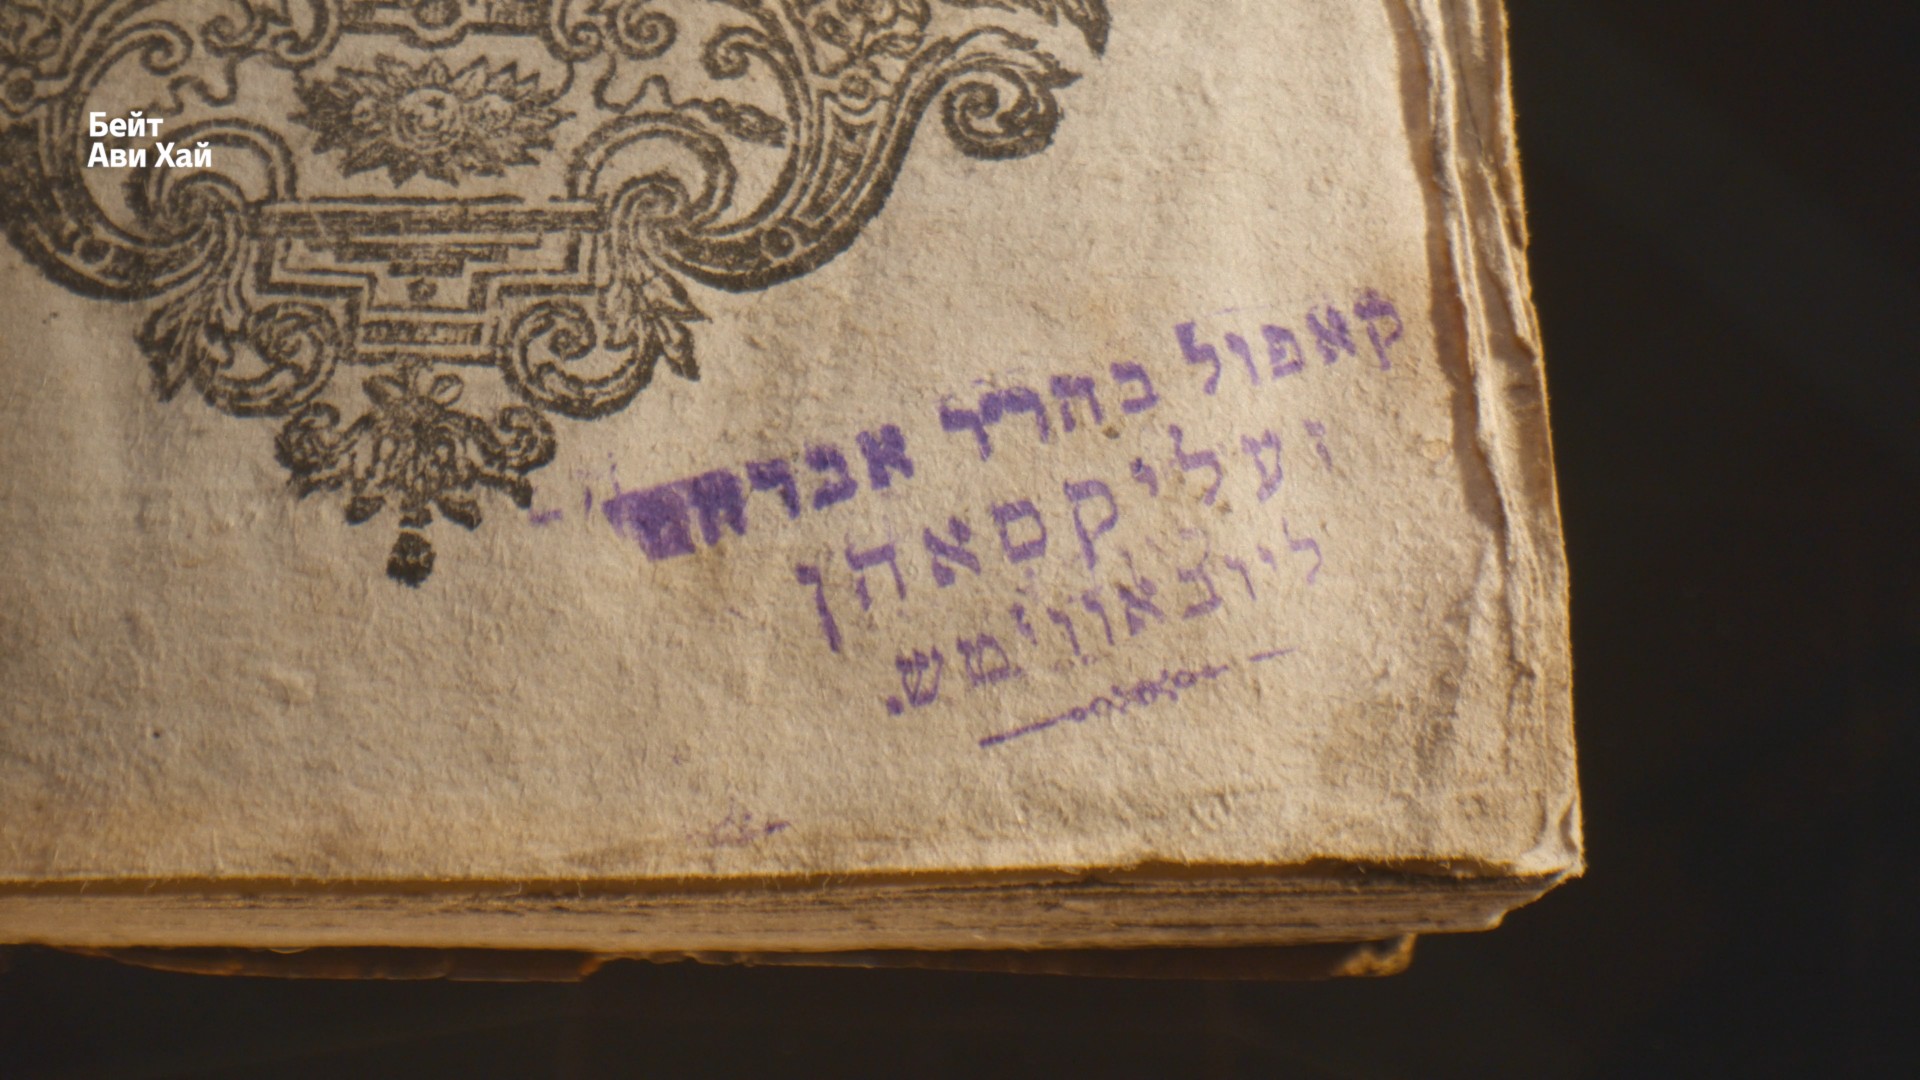 Бейт
Ави Хай
קאפול בהריר אברהם
זעליקסאהן
ליובאוויטש.